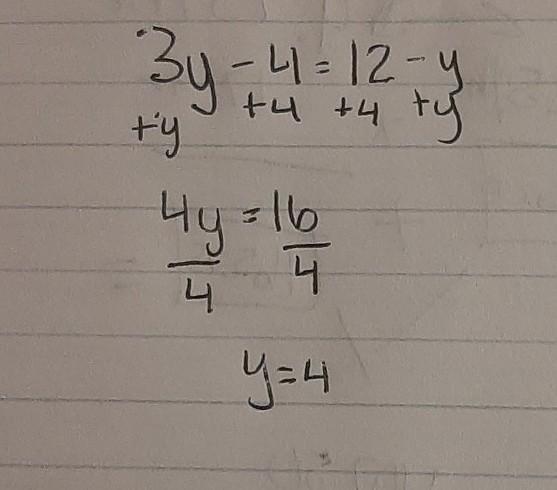 3y - 4 = 12 - y
+y +4 +4 +y
4y = 16
4 4
y = 4